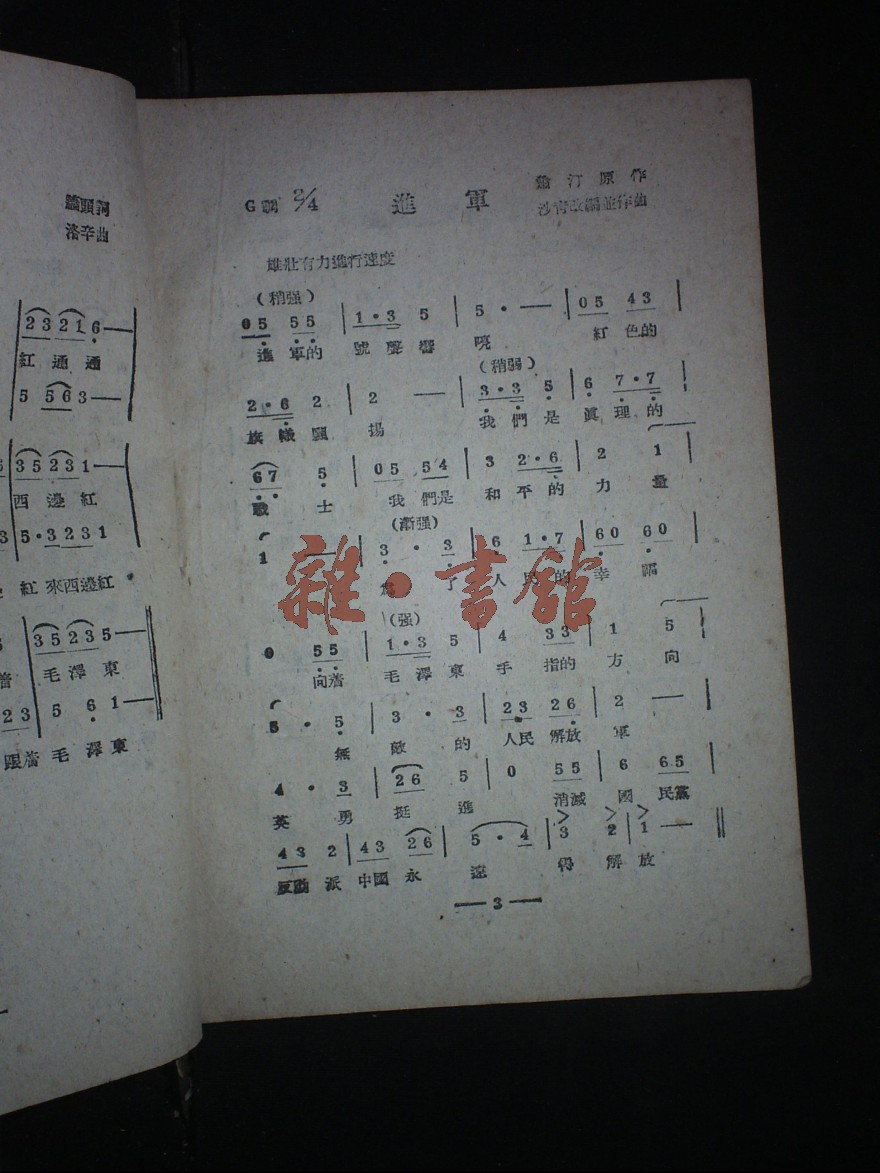 頭詞
洛辛曲
2 3 2 1 6 —
紅 通 通
5 5 6 3 —
3 5 2 3 1 —
西 邊 紅
3 5 · 3 2 3 1
紅 來西邊紅
3 5 2 3 5 —
着 毛 澤 東
2 3 5 6 1 —
跟着 毛 澤 東
G調 2/4 進 軍 汀 原 作
沙青改編並作曲
雄壯有力進行速度
(稍强)
0 5 5 5 | 1 · 3 5 | 5 · — | 0 5 4 3 |
進 軍的 號 聲 響 喨 紅 色的
(稍弱)
2 · 6 2 | 2 — | 3 · 3 5 | 6 7 · 7 |
旗 幟 飄 揚 我 們 是 眞 理 的
6 7 5 | 0 5 5 4 | 3 2 · 6 | 2 1 |
戰 士 我 們是 和 平 的 力 量
(漸强)
1 — | 3 · 3 | 6 1 · 7 | 6 0 6 0 |
爲 了 人 民 的 幸 福
(强)
0 5 5 | 1 · 3 5 | 4 3 3 | 1 5 |
向着 毛 澤 東 手 指的 方 向
5 · 5 | 3 · 3 | 2 3 2 6 | 2 — |
無 敵 的 人民 解放 軍
4 · 3 | 2 6 5 | 0 5 5 | 6 6 5 |
英 勇 挺 進 消滅 國 民黨
4 3 2 | 4 3 2 6 | 5 · 4 | 3 2 | 1 — ||
反動 派 中國 永 遠 得 解 放
— 3 —
雜·書館